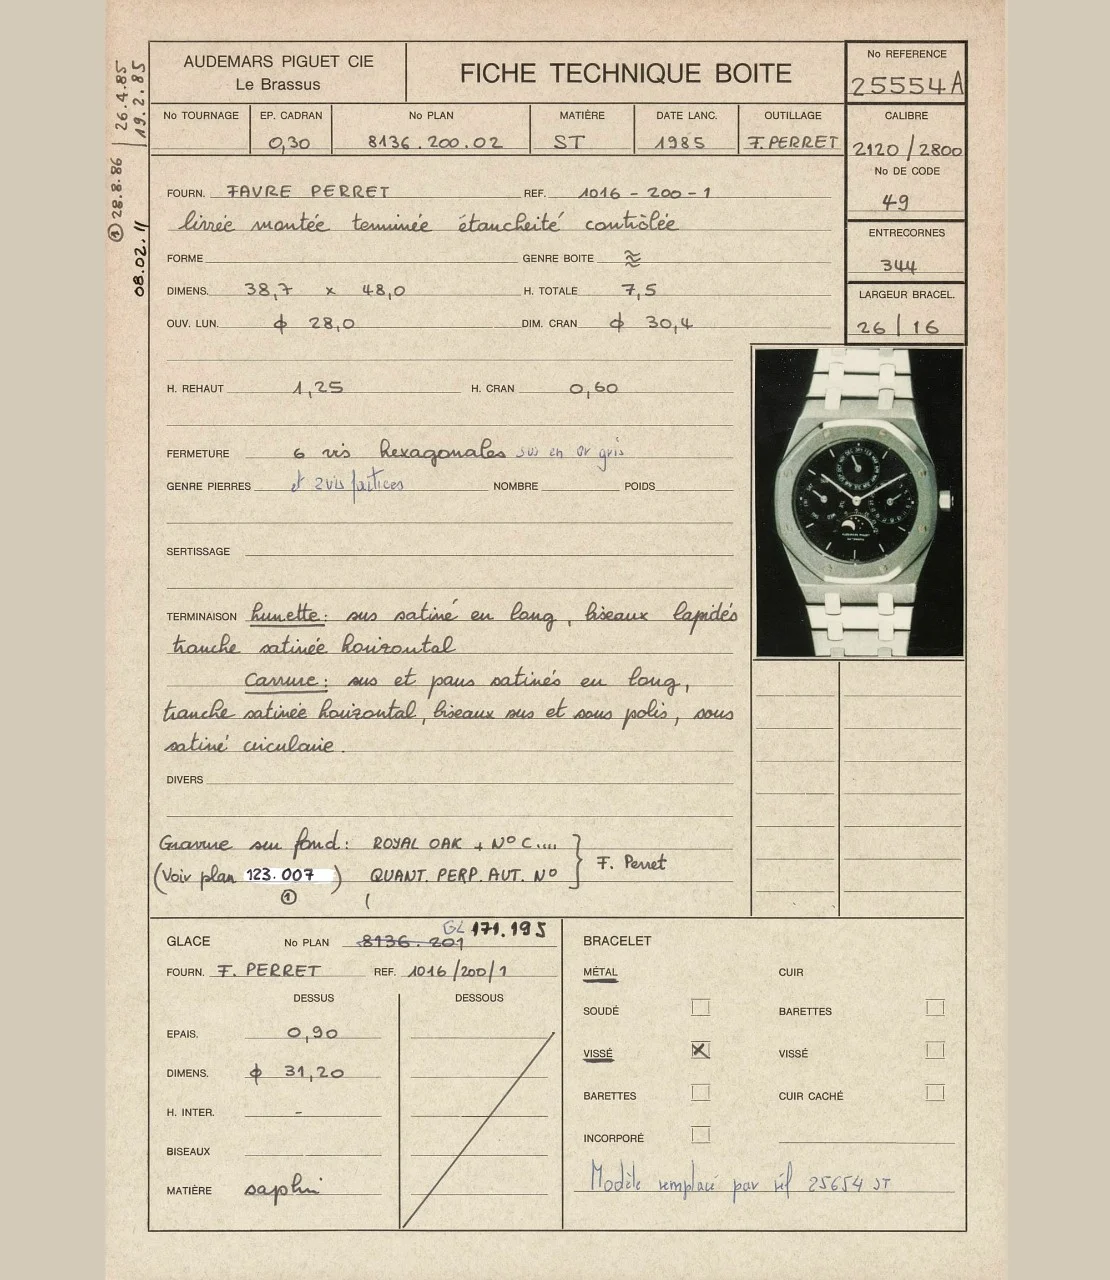 26.4.85
19.2.85
① 28.8.86
08.02.11
AUDEMARS PIGUET CIE
Le Brassus
FICHE TECHNIQUE BOITE
No REFERENCE
25554A
No TOURNAGE
EP. CADRAN
0,30
No PLAN
8136.200.02
MATIÈRE
ST
DATE LANC.
1985
OUTILLAGE
F. PERRET
CALIBRE
2120/2800
No DE CODE
49
ENTRECORNES
344
LARGEUR BRACEL.
26 | 16
FOURN. FAVRE PERRET REF. 1016 - 200 - 1
livrée montée terminée étancheité contrôlée
FORME GENRE BOITE
DIMENS. 38,7 x 48,0 H. TOTALE 7,5
OUV. LUN. ϕ 28,0 DIM. CRAN ϕ 30,4
H. REHAUT 1,25 H. CRAN 0,60
FERMETURE 6 vis hexagonales en or gris
GENRE PIERRES et 2 vis factices NOMBRE POIDS
SERTISSAGE
TERMINAISON Lunette: sus satiné en long, biseaux lapidés
tranche satinée horizontal
Carrure: sus et pans satinés en long,
tranche satinée horizontal, biseaux sus et sous polis, sous
satiné circulaire.
DIVERS
Gravure sur fond: ROYAL OAK + No C.... } F. Perret
(Voir plan 123.007) QUANT. PERP. AUT. No
①
AUDEMARS PIGUET
GLACE No PLAN 8136.201 GL 171.195
FOURN. F. PERRET REF. 1016/200/1
DESSUS DESSOUS
EPAIS. 0,90
DIMENS. ϕ 31,20
H. INTER. -
BISEAUX
MATIÈRE saphir
BRACELET
MÉTAL CUIR
SOUDÉ BARETTES
VISSÉ X VISSÉ
BARETTES CUIR CACHÉ
INCORPORÉ
Modèle remplacé par réf 25654 ST